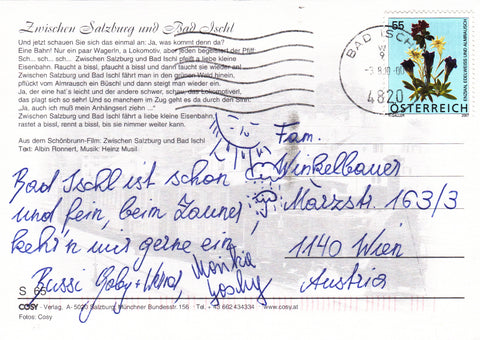 Zwischen Salzburg und Bad Ischl
Und jetzt schauen Sie sich das einmal an: Ja, was kommt denn da?
Eine Bahn! Nur ein paar Wagerln, a Lokomotiv, aber jeden begeistert der Pfiff:
Sch... sch... sch... Zwischen Salzburg und Bad Ischl pfeift a liebe kleine
Eisenbahn. Raucht a bissl, pfaucht a bissl und dann faucht sie wieder an!
Zwischen Salzburg und Bad Ischl fährt man in den grünen Wald hinein,
pflückt vom Almrausch ein Büscherl und dann steigt man wieder ein.
Ja, die eine hat's leicht und der andere schwer, schau, das Lokomotivlerl,
das plagt sich so sehr! Und so manchem im Zug geht es da durch den Sinn:
„Ja, auch ich muß mein Anhängserl ziehn ..."
Zwischen Salzburg und Bad Ischl fährt a liebe kleine Eisenbahn,
rastet a bissl, rennt a bissl, bis sie nimmer weiter kann.
Aus dem Schönbrunn-Film: Zwischen Salzburg und Bad Ischl
Text: Albin Ronnert, Musik: Heinz Musil
55
ENZIAN, EDELWEISS UND ALMRAUSCH
ÖSTERREICH
2007
BAD ISCHL
4820
Fam.
Winkelbauer
Märzstr. 163/3
1140 Wien
Austria
Bad Ischl ist schön
und fein, beim Zauner
kehr'n wir gerne ein
Bussi Gaby +
Monika
S 65
COSY Verlag, A- 5020 Salzburg, Münchner Bundesstrasse 156 · Tel +43 662 434334 www.cosy.at
Foto: Cosy